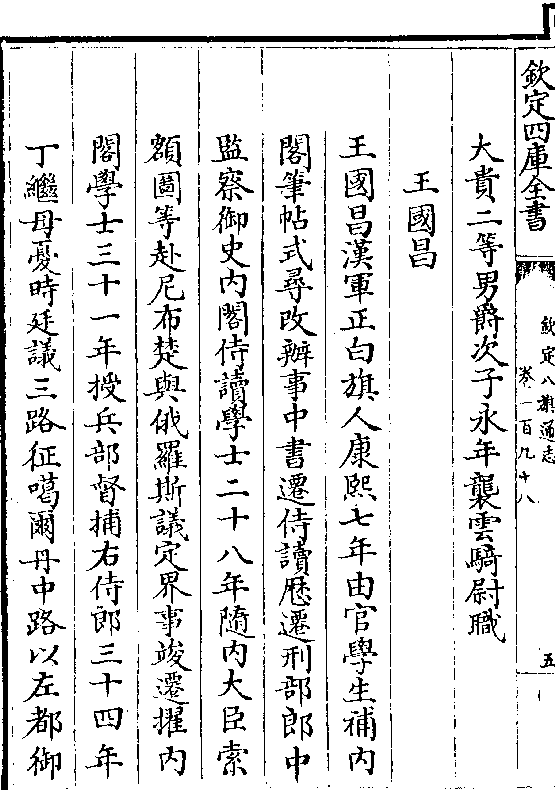 欽定四庫全書
欽定八旗通志
卷一百九十八
五
大貴二等男爵次子永年襲雲騎尉職
王國昌
王國昌漢軍正白旗人康熙七年由官學生補内
閣筆帖式尋改辦事中書遷侍讀歴遷刑部郎中
監察御史内閣侍讀學士二十八年隨内大臣索
額圖等赴尼布楚與俄羅斯議定界事竣遷擢内
閣學士三十一年授兵部督捕右侍郎三十四年
丁繼母憂時廷議三路征噶爾丹中路以左都御